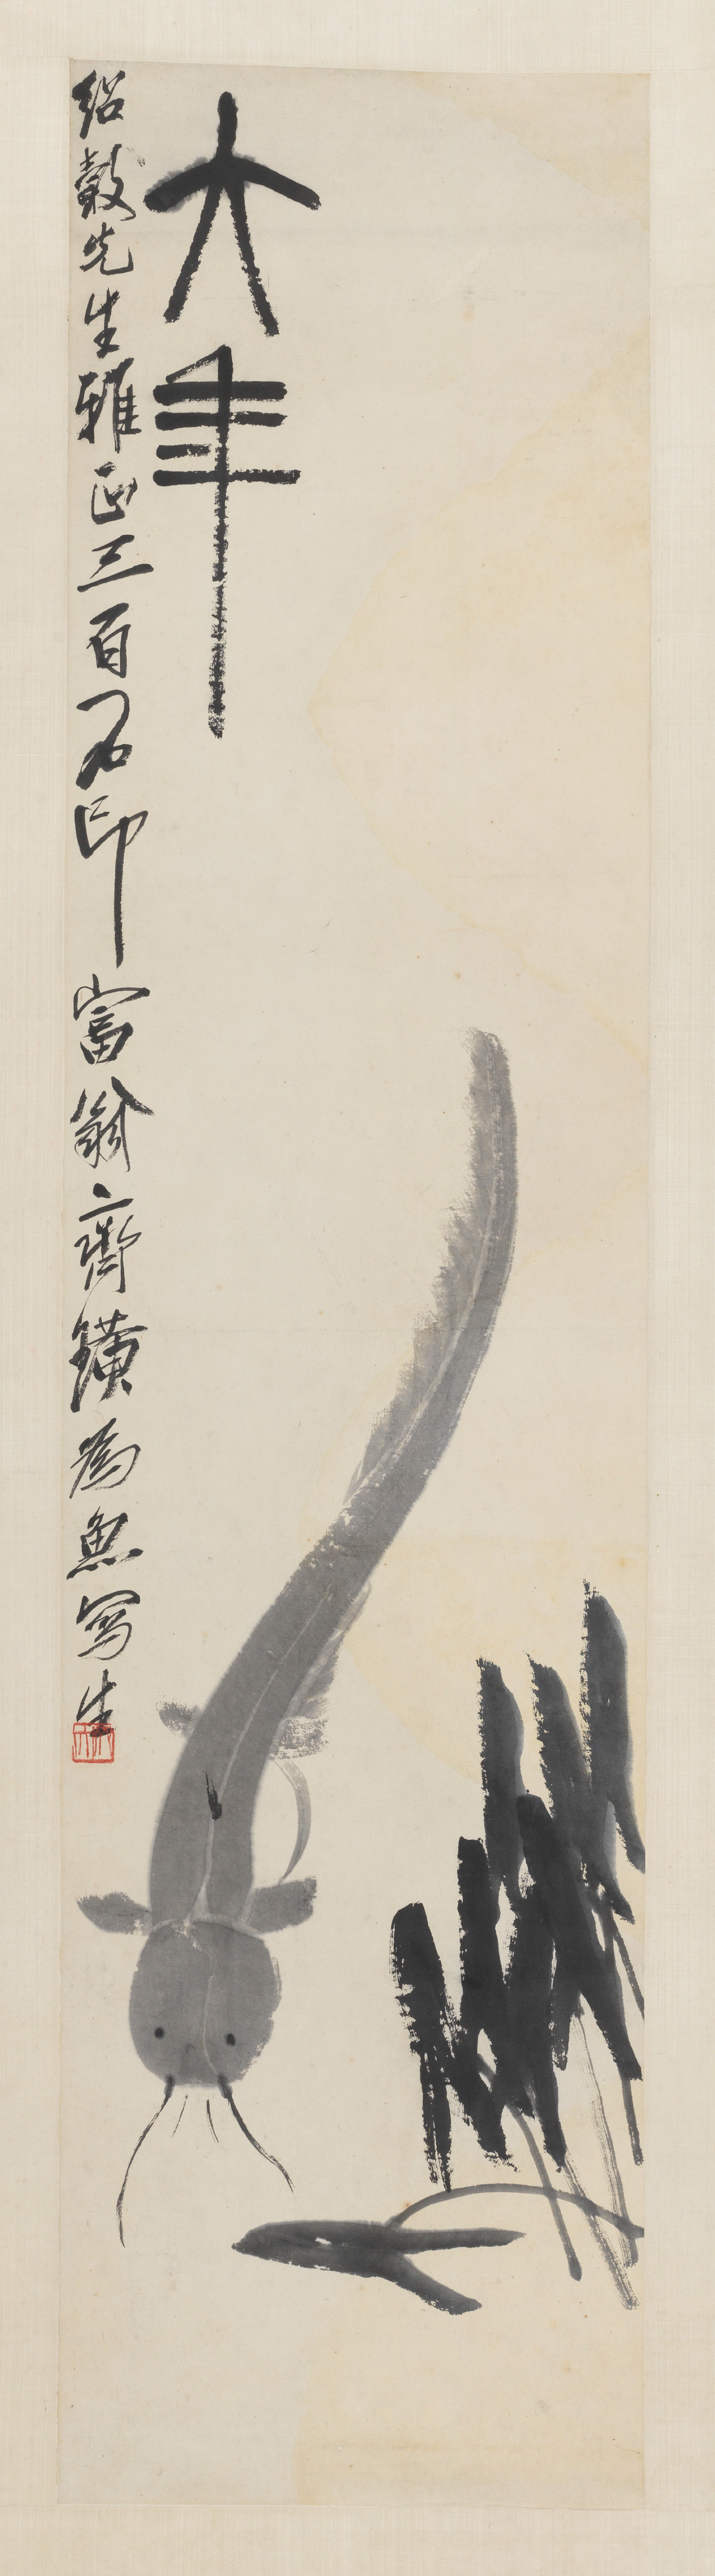 大年
紹穀先生雅正三百石印富翁齊璜為魚寫生